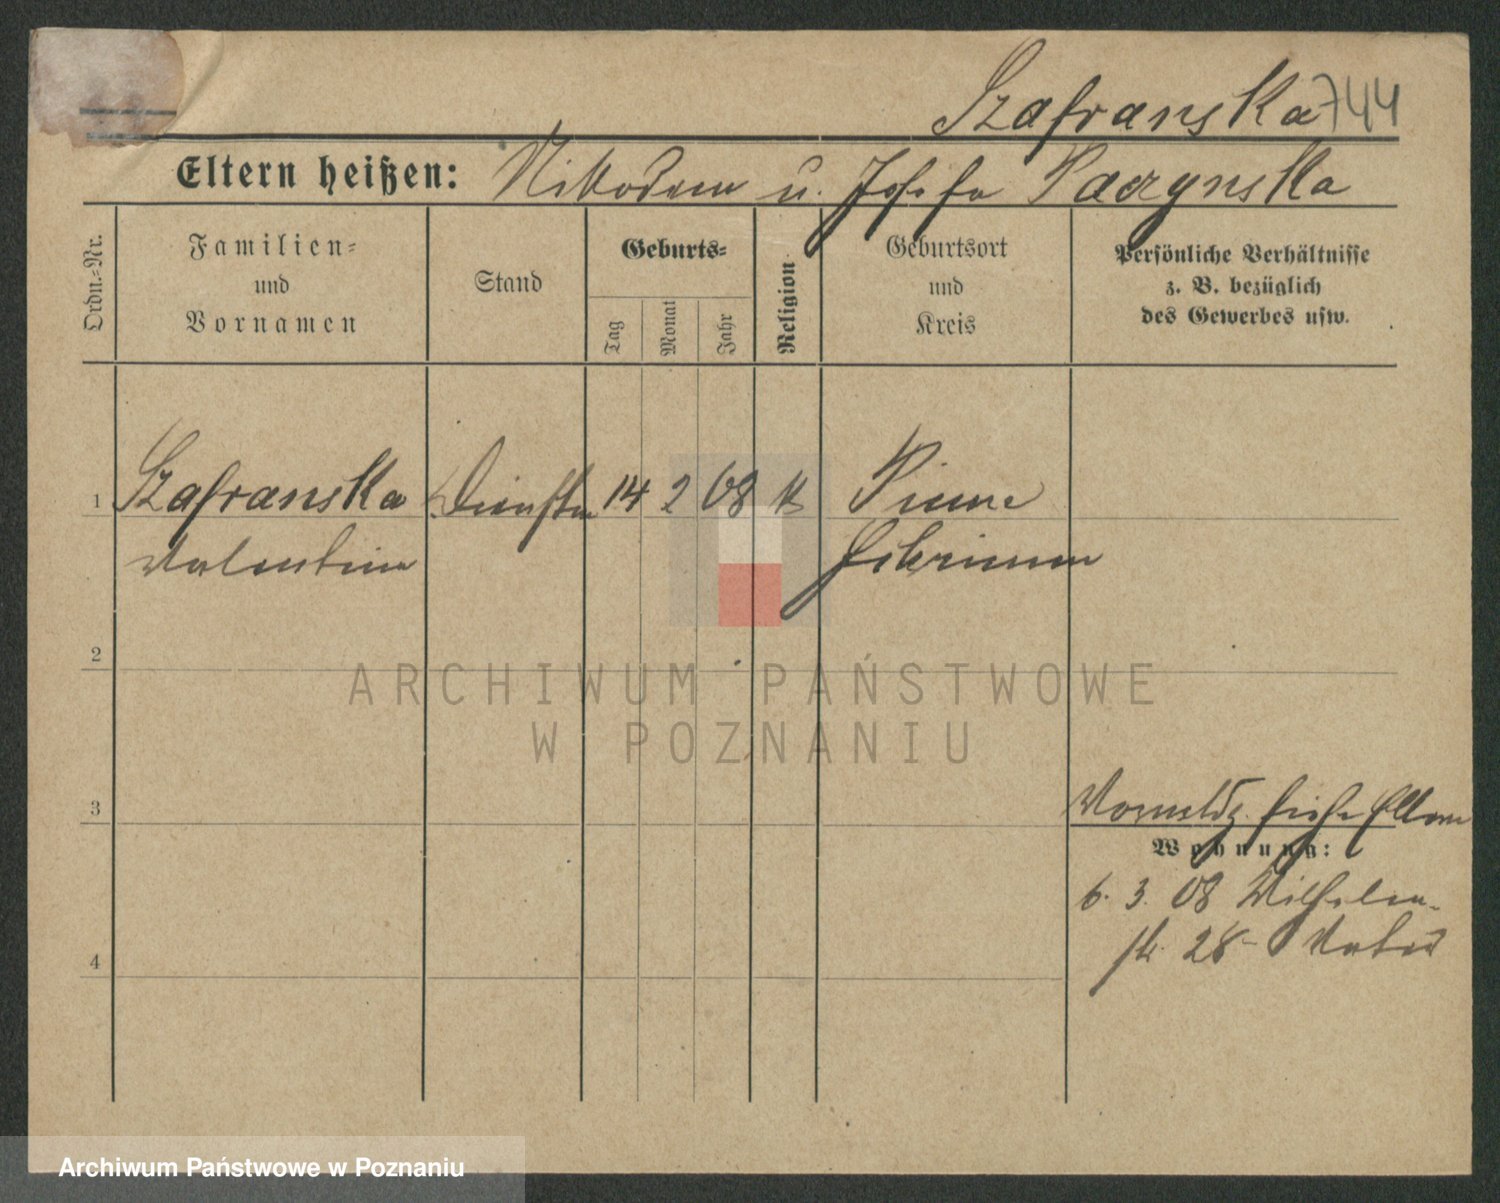 Szafranska 744
Eltern heißen: Nikodem u. Josefa Paczynska
Ordn.-Nr.
Familien-
und
Vornamen
Stand
Geburts-
Tag
Monat
Jahr
Religion
Geburtsort
und
Kreis
Persönliche Verhältnisse
z. B. bezüglich
des Gewerbes usw.
1 Szafranska 14 2 08 K Pinne
Valentina
2
3
siehe Eltern
Wohnung:
6. 3. 08 Wilhelm-
str. 28
4
ARCHIWUM PAŃSTWOWE
W POZNANIU
Archiwum Państwowe w Poznaniu